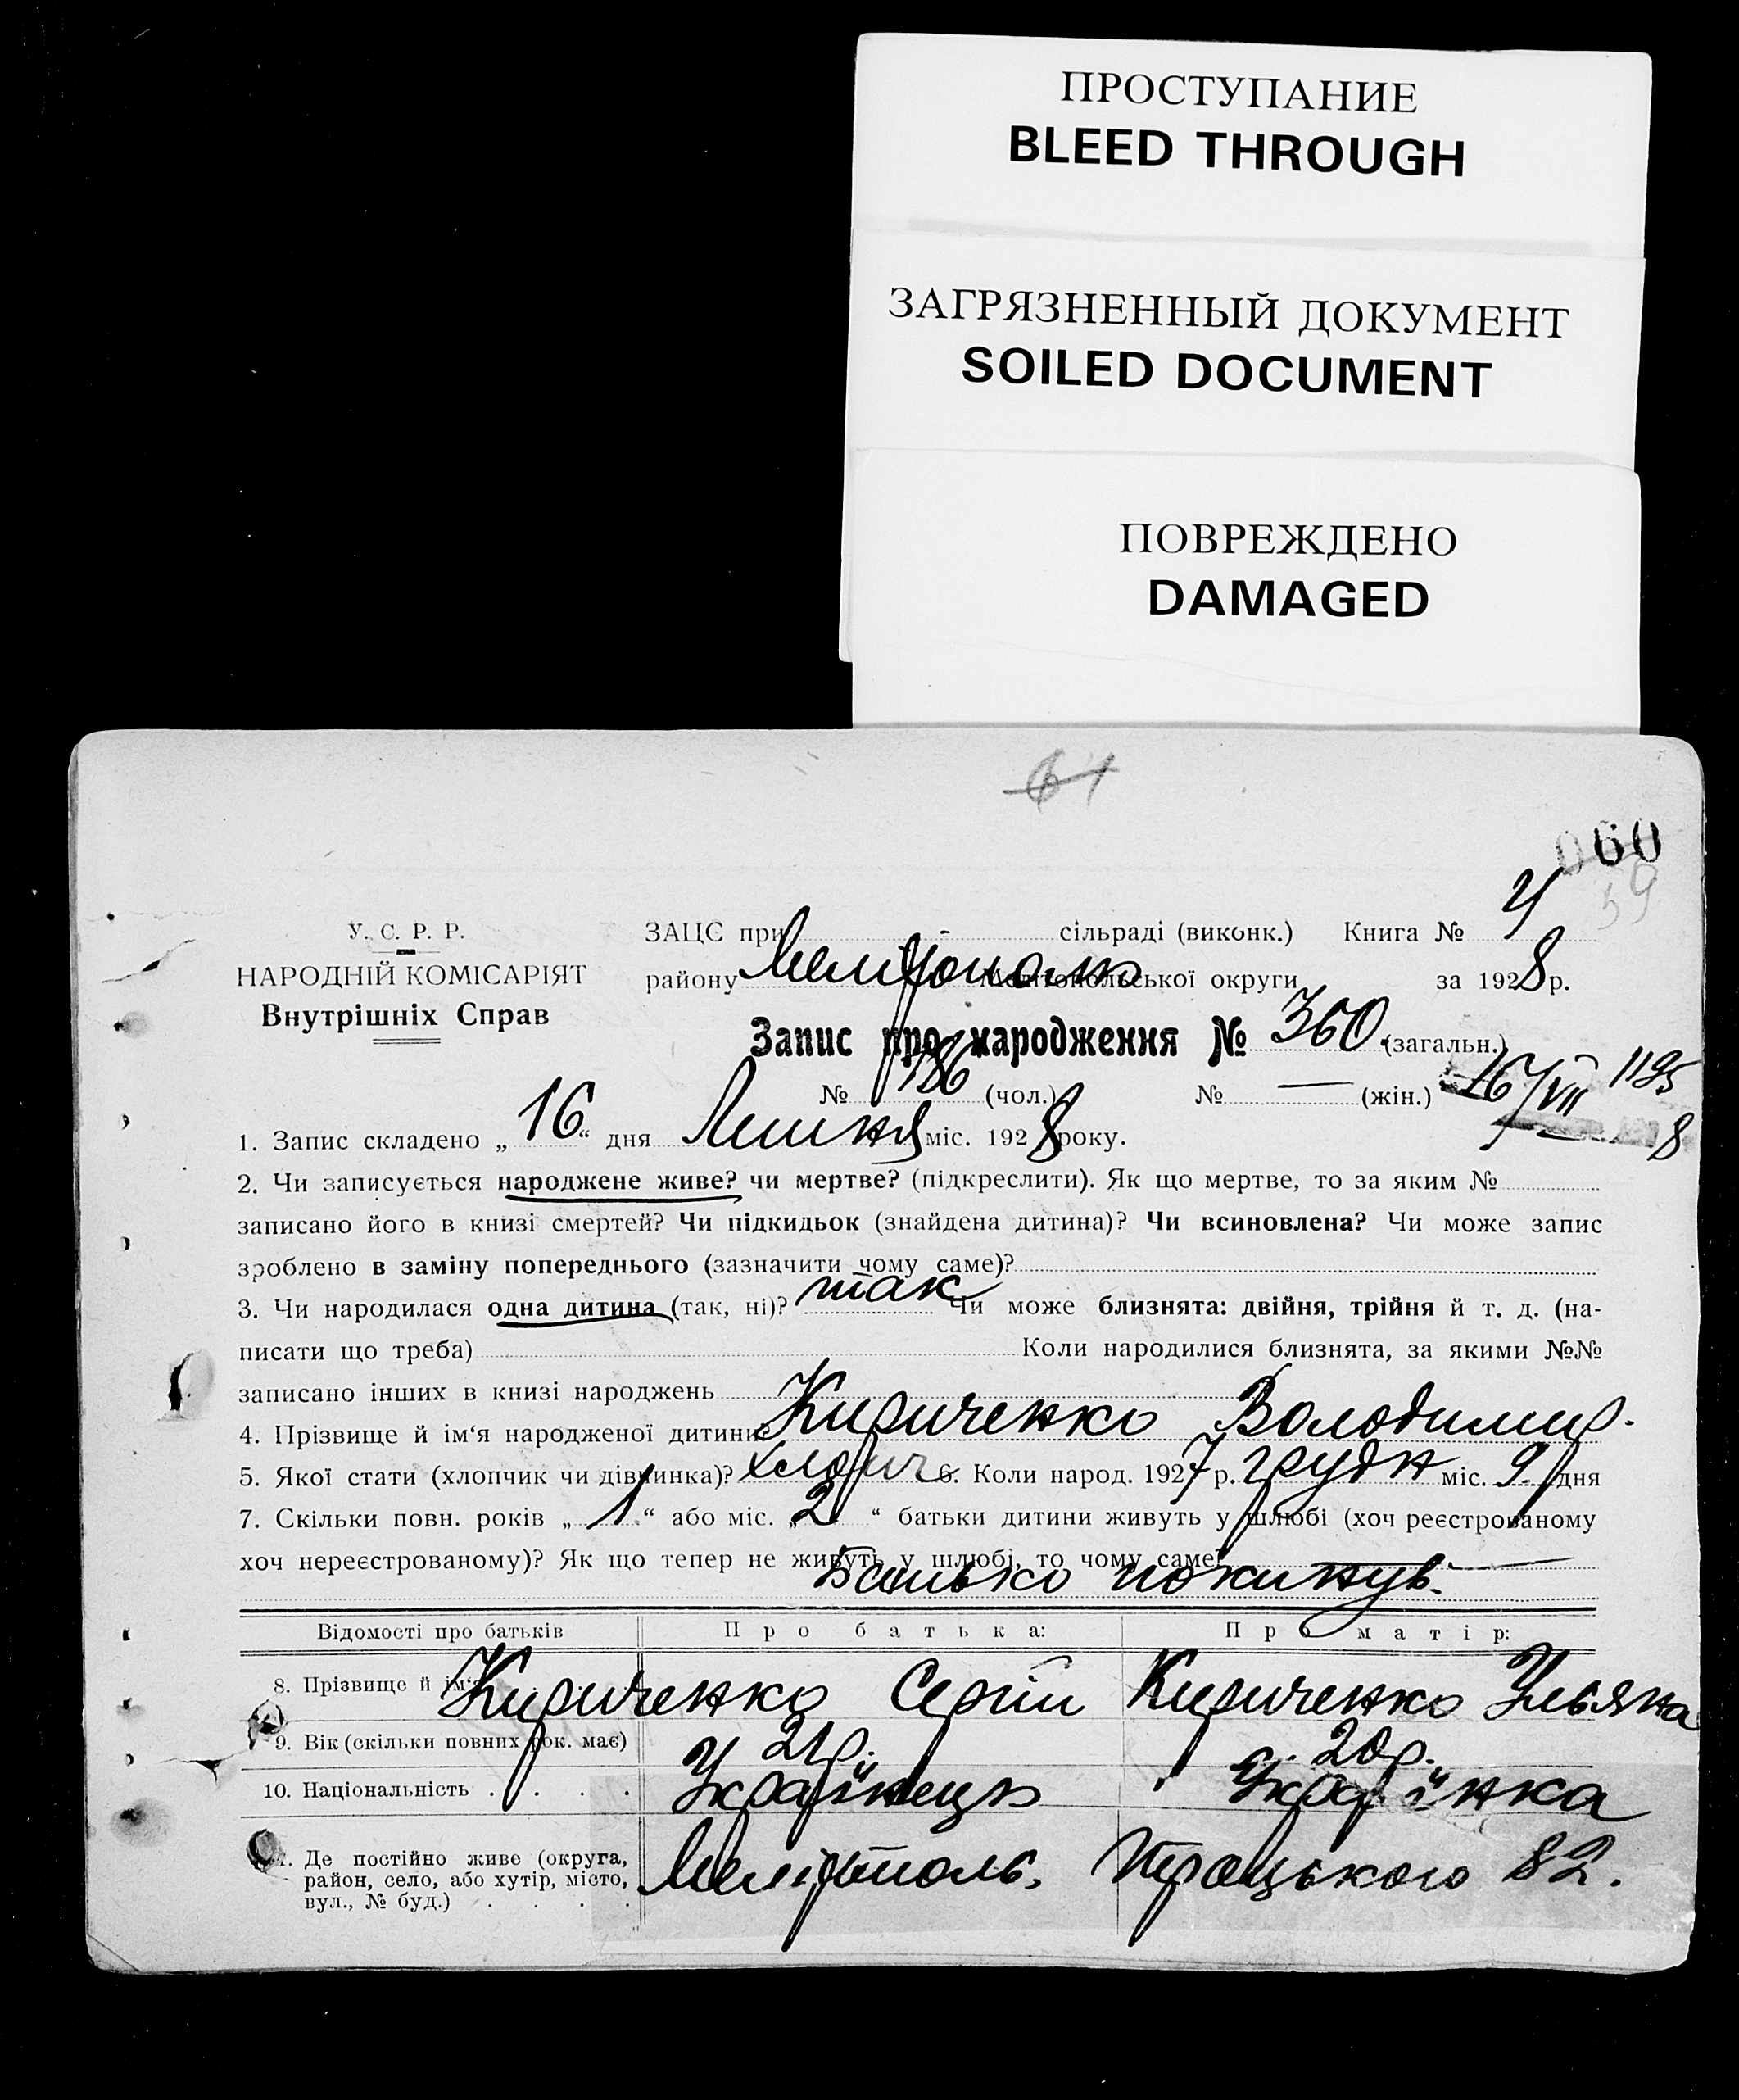 ПРОСТУПАНИЕ
BLEED THROUGH
ЗАГРЯЗНЕННЫЙ ДОКУМЕНТ
SOILED DOCUMENT
ПОВРЕЖДЕНО
DAMAGED
61
060
59
У. С. Р. Р.
НАРОДНІЙ КОМІСАРІЯТ
Внутрішніх Справ
ЗАЦС при - сільраді (виконк.) Книга № 4
району Мелітополь Мелітопольської округи за 1928 р.
Запис про народження № 360. (загальн.)
№ 186 (чол.) № — (жін.) 16/VII 1195
8
1. Запис складено „16“ дня Липня міс. 1928 року.
2. Чи записується народжене живе? чи мертве? (підкреслити). Як що мертве, то за яким №
записано його в книзі смертей? Чи підкидьок (знайдена дитина)? Чи всиновлена? Чи може запис
зроблено в заміну попереднього (зазначити чому саме)?
3. Чи народилася одна дитина (так, ні)? так Чи може близнята: двійня, трійня й т. д. (на-
писати що треба) Коли народилися близнята, за якими №№
записано інших в книзі народжень
4. Прізвище й ім‘я народженої дитини Кириченко Володимир.
5. Якої стати (хлопчик чи дівчинка)? хлопч 6. Коли народ. 1927 р. грудн міс. 9. дня
7. Скільки повн. років „1“ або міс. „2“ батьки дитини живуть у шлюбі (хоч реєстрованому
хоч нереєстрованому)? Як що тепер не живуть у шлюбі, то чому саме?
Батько покинув.
Відомості про батьків Про батька: Про матір:
8. Прізвище й ім‘я Кириченко Сергій Кириченко Ульяна
9. Вік (скільки повних рок. має) 21р. 20р.
10. Національність . . . . Українець Українка
11. Де постійно живе (округа,
район, село, або хутір, місто,
вул., № буд.) . . . . Мелітополь, Троцького 82.